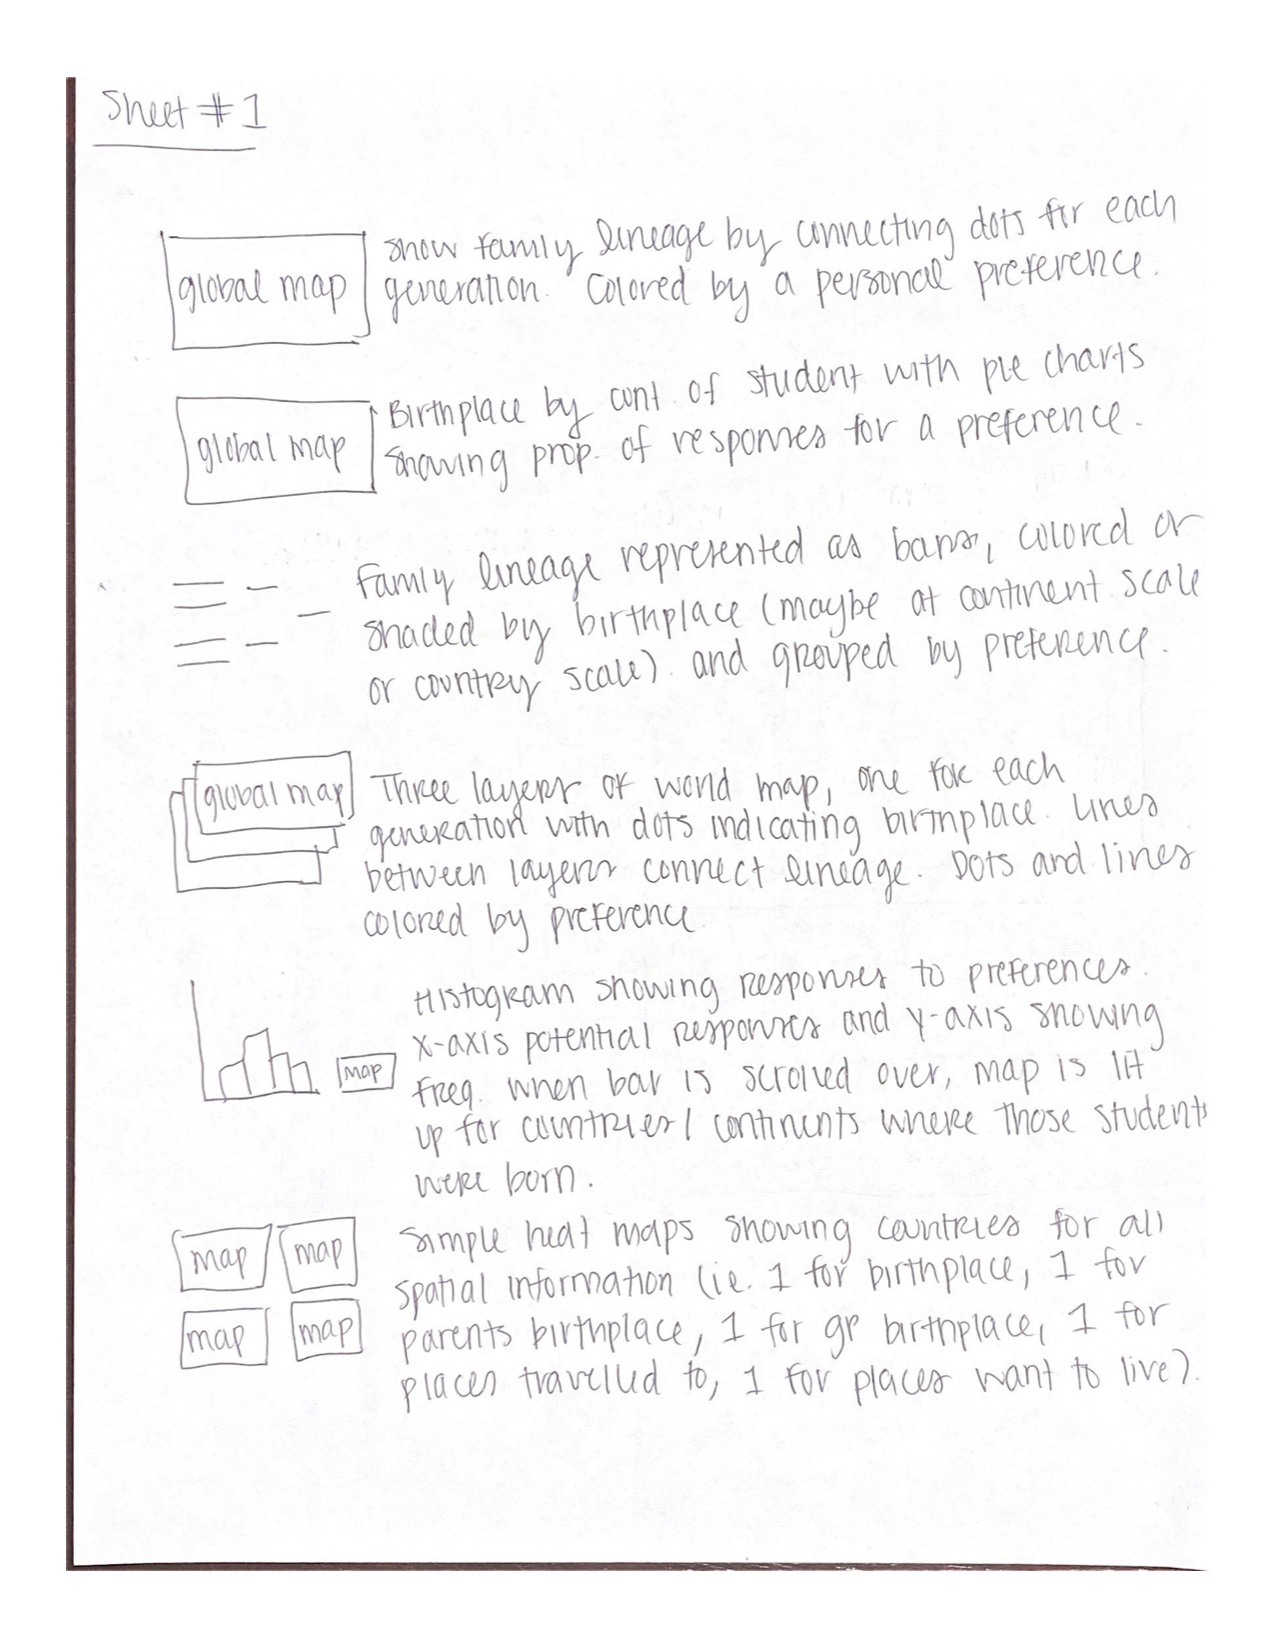 Sheet #1
global map
show family lineage by connecting dots for each
generation. Colored by a personal preference.
global map
Birthplace by cont. of student with pie charts
showing prop. of responses for a preference.
Family lineage represented as bars, colored or
shaded by birthplace (maybe at continent scale
or country scale). and grouped by preference.
global map
Three layers of world map, one for each
generation with dots indicating birthplace. Lines
between layers connect lineage. Dots and lines
colored by preference
map
Histogram showing responses to preferences.
X-axis potential responses and Y-axis showing
freq. when bar is scrolled over, map is lit
up for countries/continents where those students
were born.
map map
map map
Simple heat maps showing countries for all
spatial information (ie. 1 for birthplace, 1 for
parents birthplace, 1 for gp birthplace, 1 for
places travelled to, 1 for places want to live).